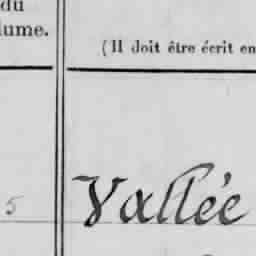 du
lume.
(Il doit être écrit en
5 Vallée